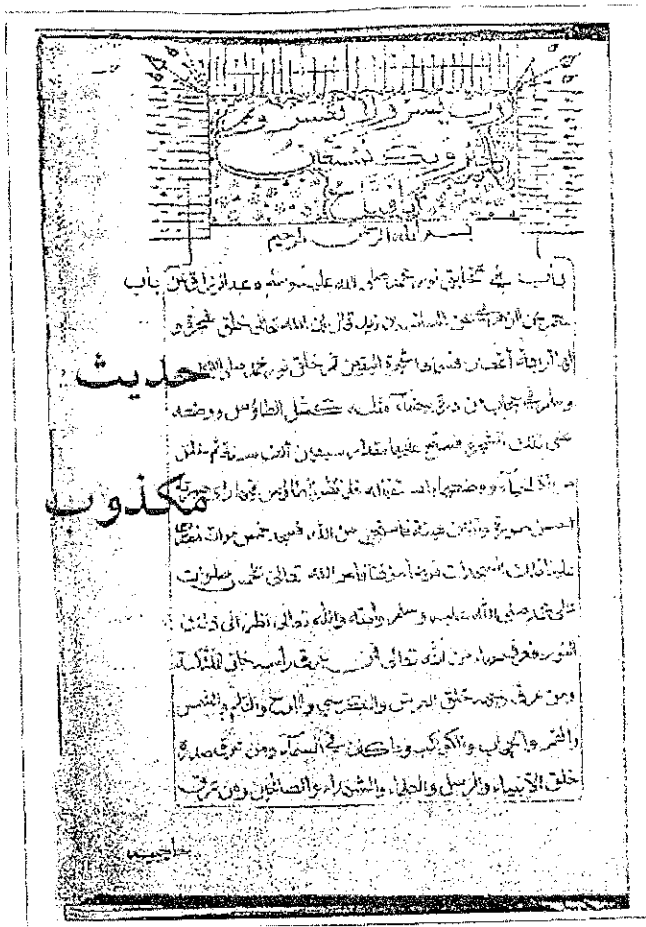 رب يسر ولا تعسر وتمم
بالخير وبك نستعين
يا فتاح
بسم الله الرحمن الرحيم
باب في تخليق نور محمد صلى الله عليه وسلم عبد الرزاق عن
باب
معمر عن الزهري عن السائب بن زيد قال إن الله تعالى خلق شجرة و
لها أربعة أغصان فسماها شجرة اليقين ثم خلق نور محمد صلى الله عليه
حديث
وسلم في حجاب من درة بيضاء مثله كمثل الطاؤس ووضعه
على تلك الشجرة فسبح عليها مقدار سبعين ألف سنة ثم خلق
مرآة الحياء ووضعها باستقباله فلما نظر الطاؤس فيها رأى صورته
مكذوب
أحسن صورة وأزين هيئة فاستحيى من الله فسجد خمس مرات فصارت
علينا تلك السجدات فرضا موقتا فأمر الله تعالى بخمس صلوات
على محمد صلى الله عليه وسلم وأمته والله تعالى نظر إلى ذلك
النور فعرق حياء من الله تعالى فمن عرق رأسه خلق الملائكة
ومن عرق وجهه خلق العرش والكرسي واللوح والقلم والشمس
والقمر والحجاب والكواكب وما كان في السماء ومن عرق صدره
خلق الأنبياء والرسل والعلماء والشهداء والصالحين ومن عرق
حاجبيه